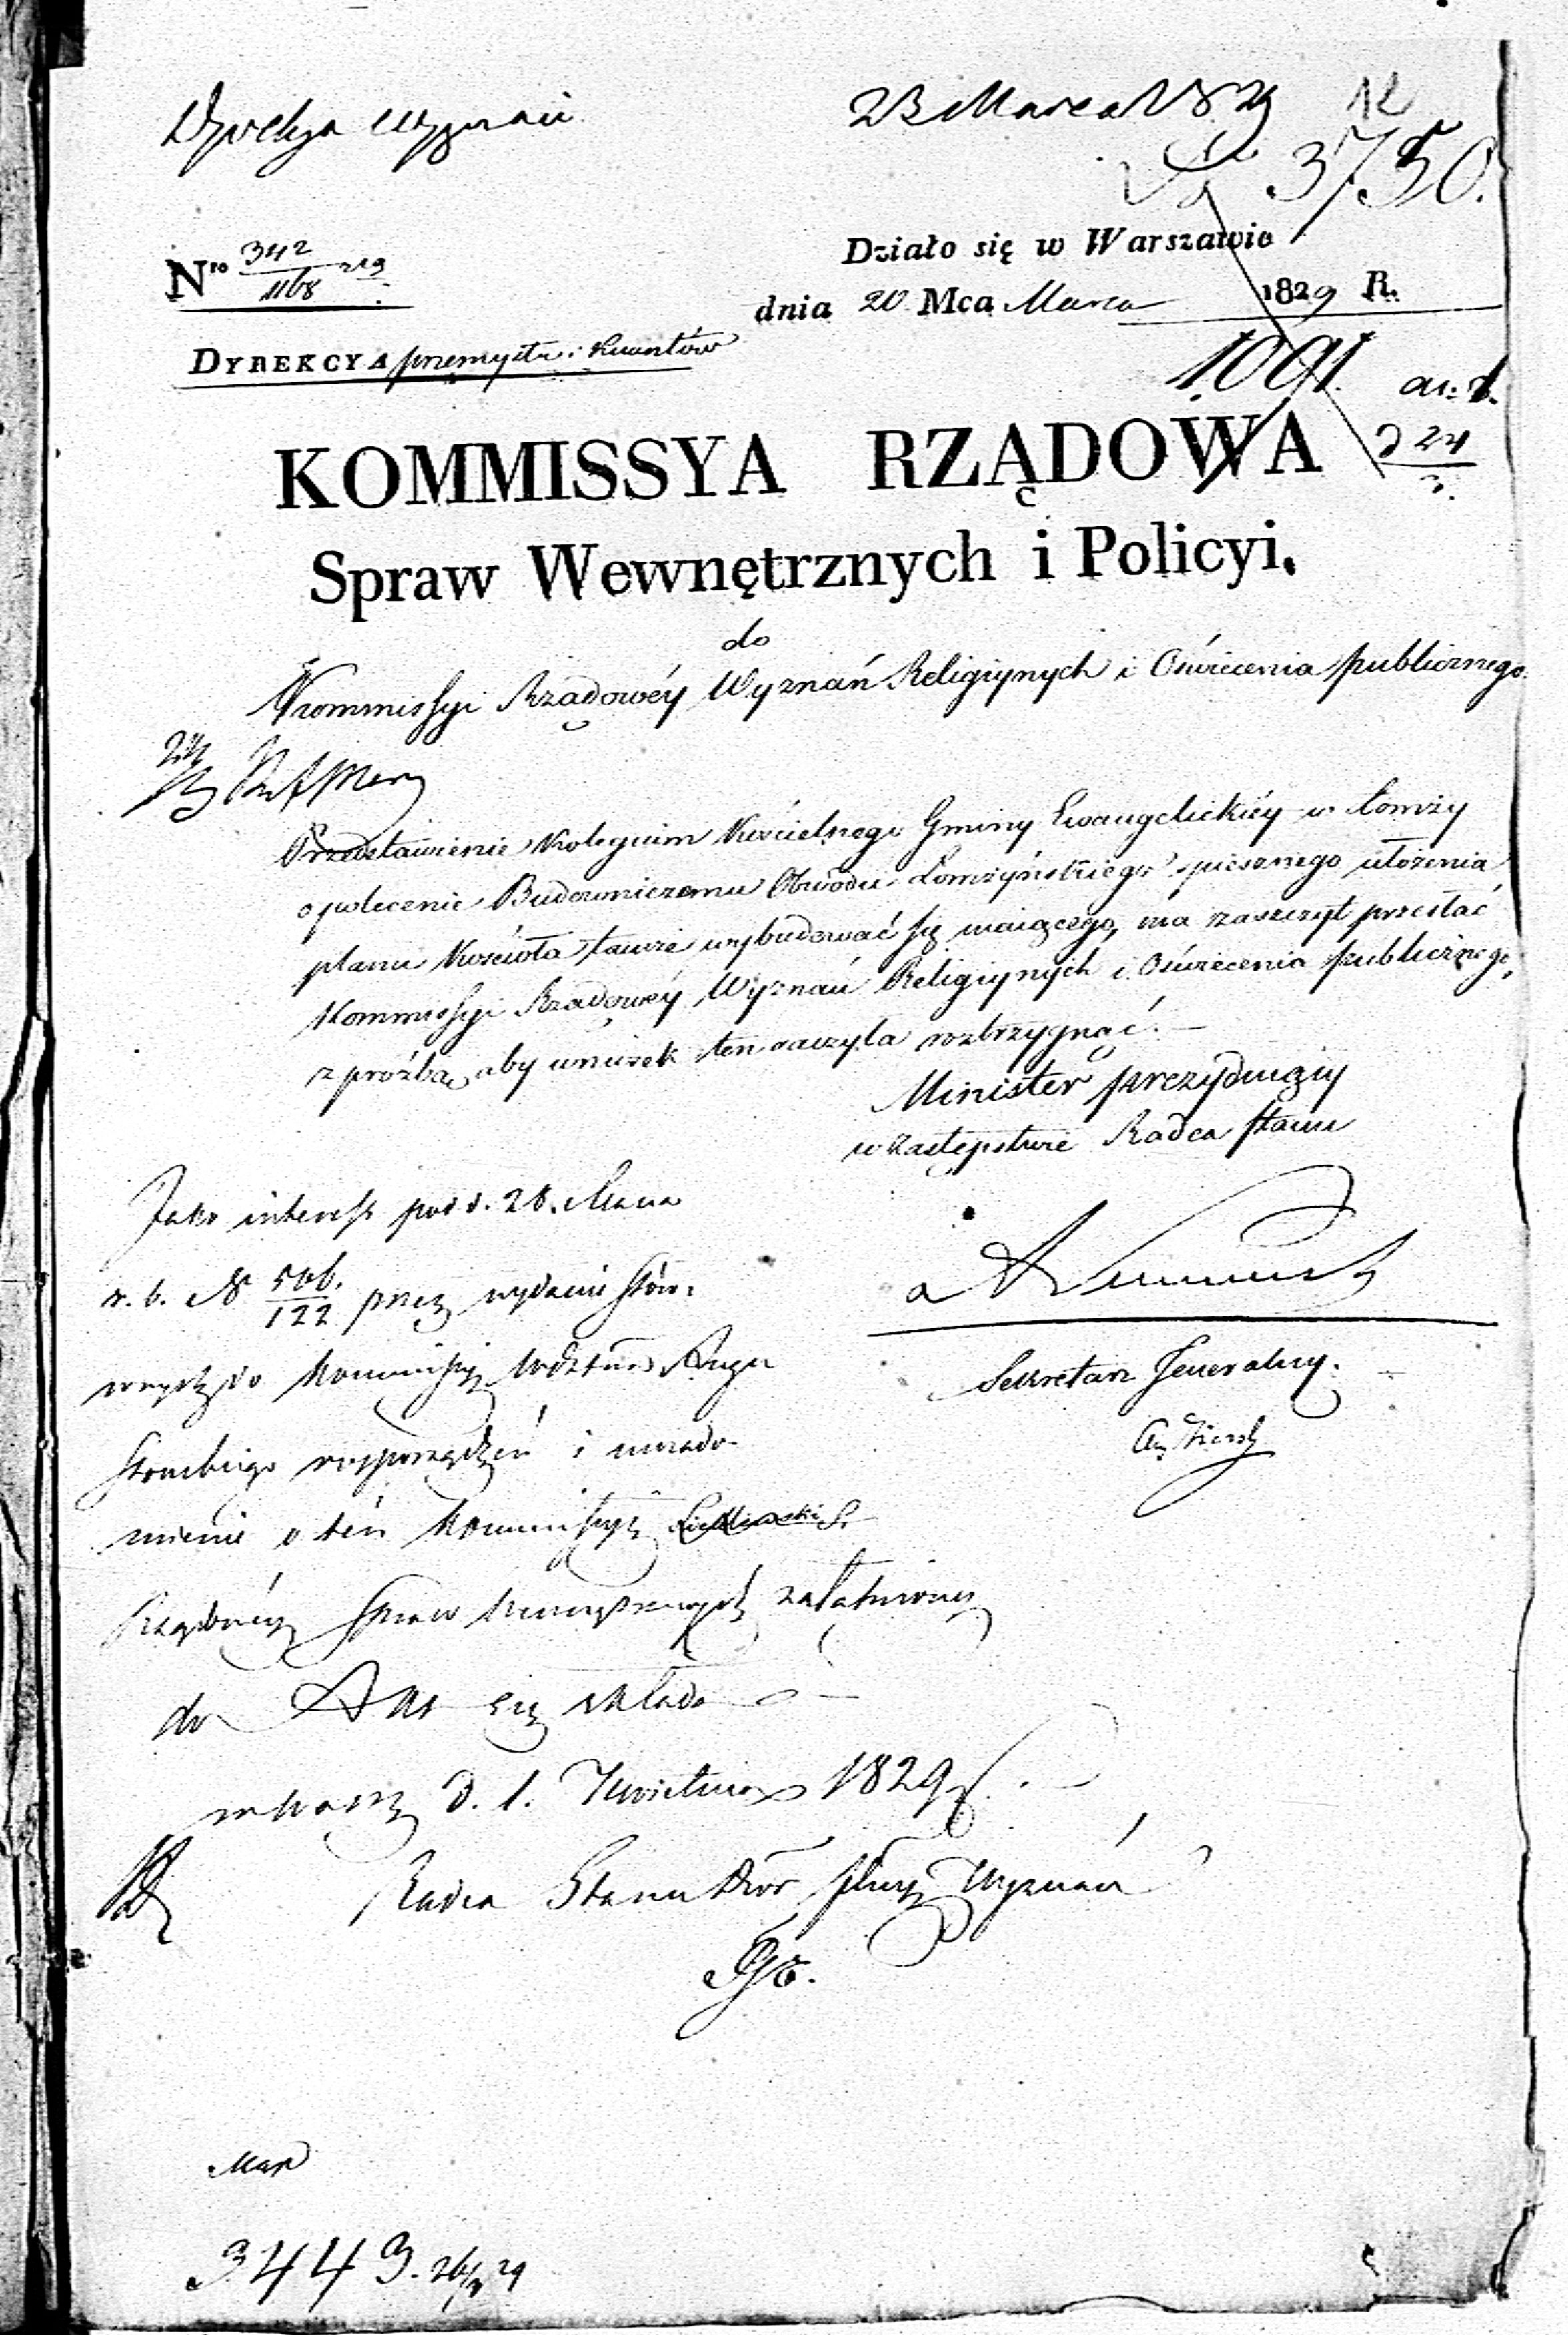 Dyrekcya Wyznań
23 Marca 1829
12
N 3750.
Nro 342/1168 829
Działo się w Warszawie
dnia 20 Mca Marca 1829 R.
DYREKCYA przemysłu i Kunsztów
1091.
KOMMISSYA RZĄDOWA
Spraw Wewnętrznych i Policyi.
do
Kommissyi Rządowéy Wyznań Religiynych i Oświecenia publicznego.
Przedstawienie Kolegium Kościelnego Gminy Ewangelickiéy w Łomży
o polecenie Budowniczemu Obwodu Łomżyńskiego spiesznego ułożenia
planu Kościoła tamże wybudować się maiącego, ma zaszczyt przesłać
Kommissyi Rządowéy Wyznań Religiynych i Oświecenia publicznego,
z proźbą, aby wniosek ten raczyła rozstrzygnąć. —
Minister prezyduiący
w zastępstwie Radca Stanu
Jako interess pod d. 28. Marca
r. b. N 506./122 przez wydanie stóso-
wnych do Kommissyi Wdztwa Augu
stowskiego rozporządzeń i uwiado-
mienie o tém Kommissyi
Rządowéy Spraw Wewnętrznych załatwiony
do Akt się składa —
w Warsz. d. 1. Kwietnia 1829 r.
Radca Stanu Dyr Jlny Wyznań
Sekretarz Jeneralny.
3443. 26/3 29